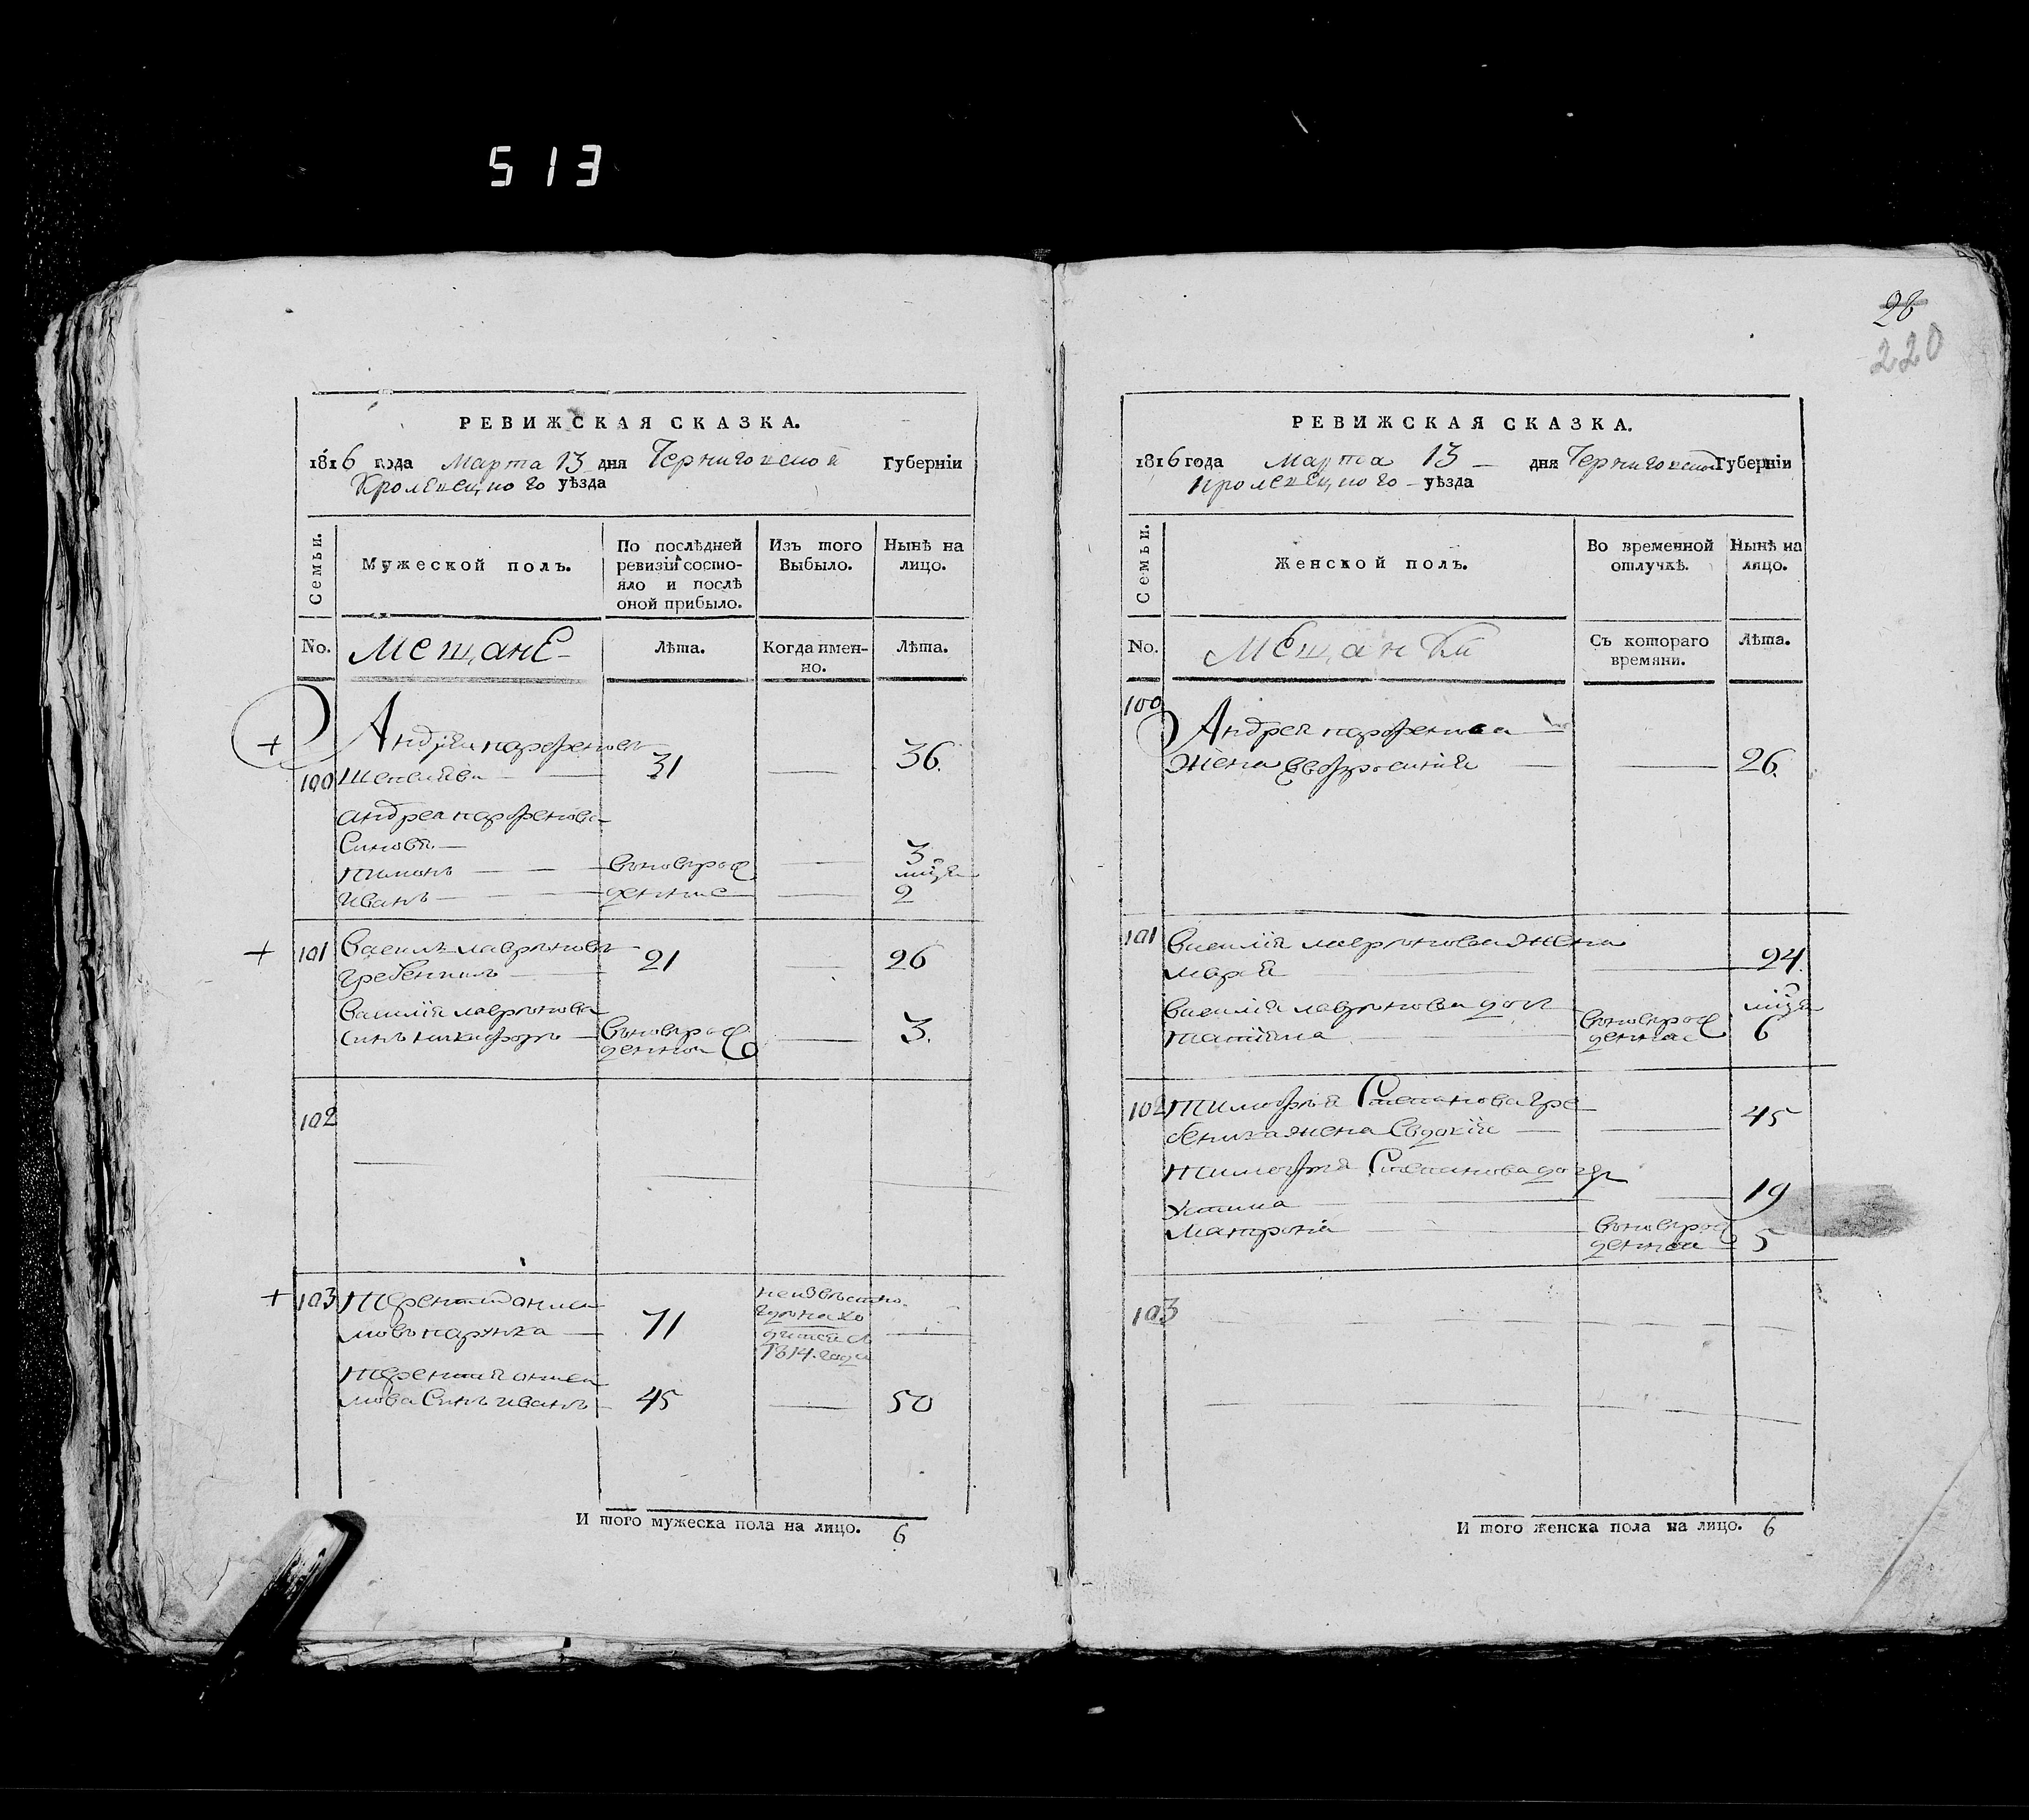 513
РЕВИЖСКАЯ СКАЗКА.
1816 года Марта 13 дня Черниговской Губерніи
Кролевецкого уѣзда
Семьи.
Мужеской полъ.
По послѣдней ревизіи состо-
яло и послѣ
оной прибыло.
Изъ того
Выбыло.
Нынѣ на
лицо.
No.
Мещане
Лѣта.
Когда имен-
но.
Лѣта.
Андрей парфеновъ
100
31
36.
андрея парфенова
Синовъя
тимонъ
вновърож
3
иванъ
денние
мця
2
101 василь лавриновъ
21
26
гребеникъ
василія лавринова
синъ никифоръ
вновърож
денной
3.
102
103 терентий аниси
мовъ
71
неизвѣстно
где нахо
дится съ
1814. года
терентия аниси
мова Синъ иванъ
45
50
И того мужеска пола на лицо. 6
28
220
РЕВИЖСКАЯ СКАЗКА.
1816 года Марта 13 дня Черниговской Губерніи
кролевецкого уѣзда
Семьи.
Женской полъ.
Во временной
отлучкѣ.
Нынѣ на
лицо.
No.
Мещанки
Съ котораго
времяни.
Лѣта.
100
Андрея парфенова
жена Евфросиния
26.
101 василія лавринова жена
марія
24.
василія лавринова дочь
татіяна
вновърож
денная
мця
6
102 тимофея Степанова гре
беника жена Евдокія
45
тимофея Степанова дочери
устина
19
матрона
вновърож
денная
5
103
И того женска пола на лицо. 6